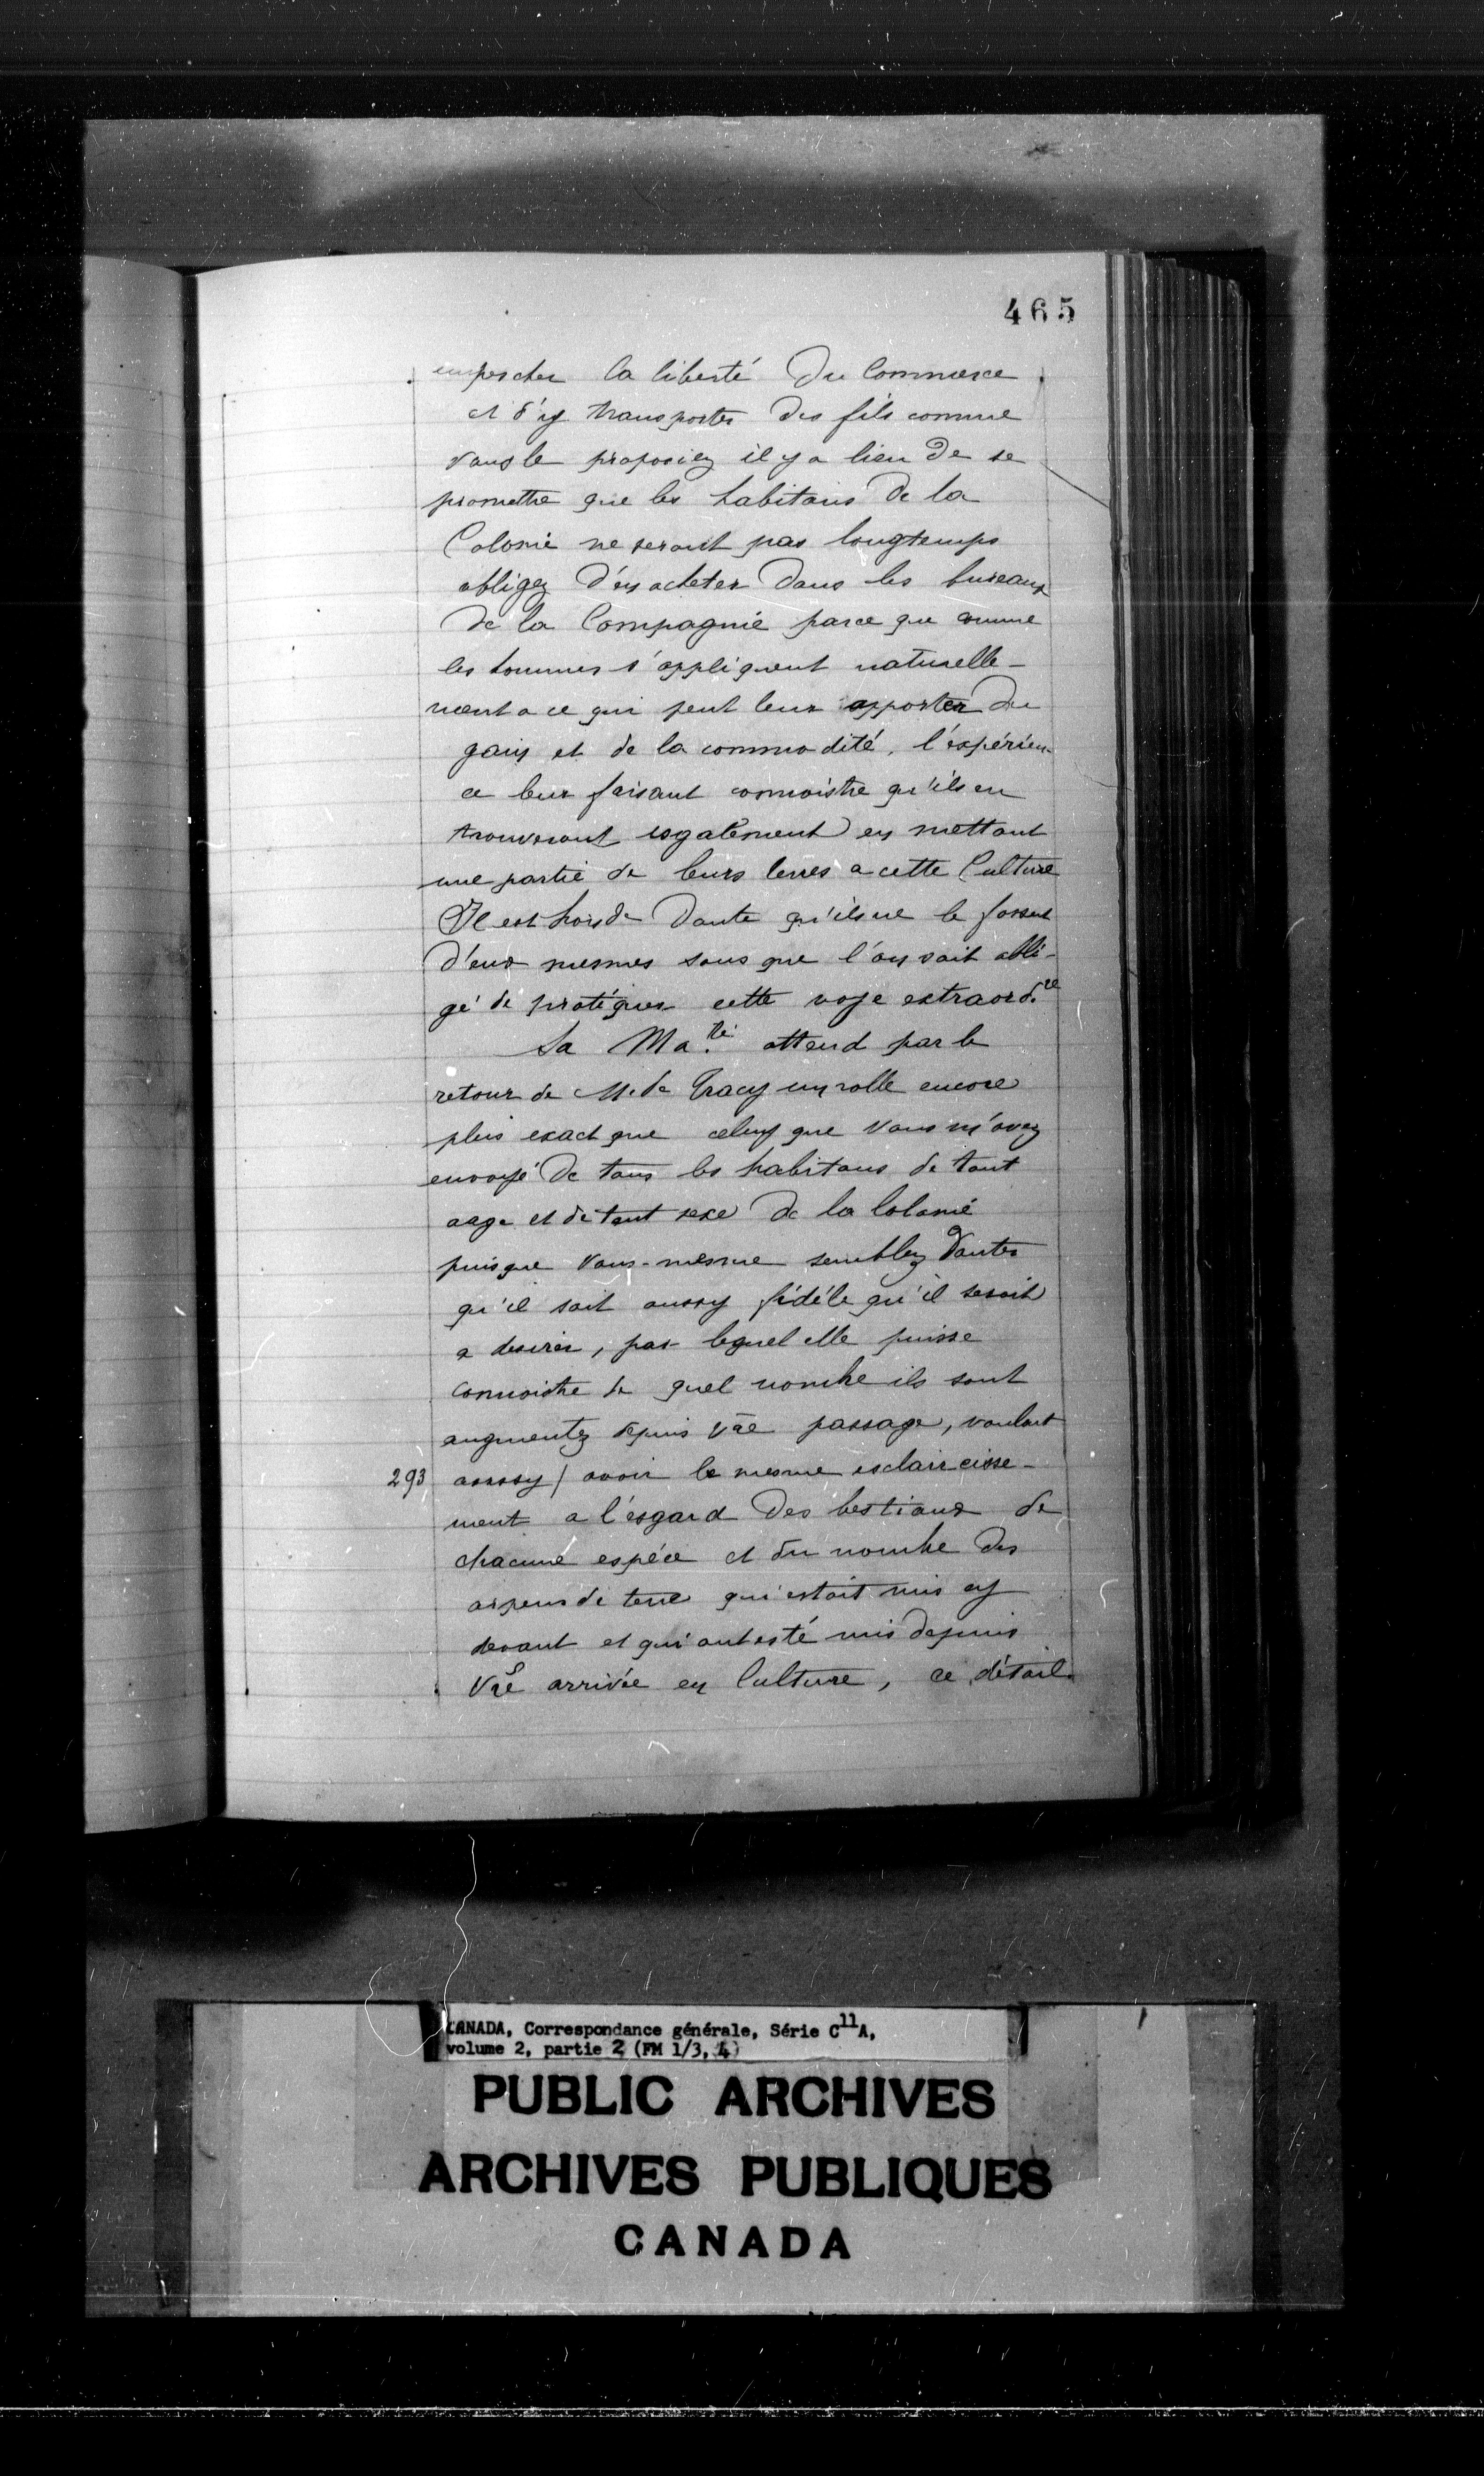 465
empescher la liberté du Commerce
et d'y transporter des fils comme
vous le proposiez il y a lieu de se
promettre que les habitans de la
Colonie ne seront pas longtemps
obligez d'en acheter dans les bureaux
de la Compagnie parce que comme
les hommes s'appliquent naturelle-
ment a ce qui peut leur apporter du
gain et de la commodité, l'expérien-
ce leur faisant connoistre qu'ils en
trouveront esgalement en mettant
une partie de leurs terres a cette Culture
Il est hors de doute qu'ils ne le fassent
d'eux mesmes sans que l'on soit obli-
gé de pratiquer cette voye extraord.re
Sa Ma.té attend par le
retour de M. de Tracy un rolle encore
plus exact que celuy que vous m'avez
envoyé de tous les habitans de tout
aage et de tout sexe de la Colonie
puisque vous-mesme semblez douter
qu'il soit aussy fidéle qu'il seroit
a desirer, par lequel elle puisse
connoistre de quel nombre ils sont
augmentez depuis vre passage, voulant
293 aussy / avoir le mesme esclaircisse-
ment a l'esgard des bestiaux de
chacune espéce et du nombre des
arpens de terre qui estoit mis cy
devant et qui ont esté mis depuis
Vre arrivée en Culture, ce détail
CANADA, Correspondance générale, Série C11A,
volume 2, partie 2 (FM 1/3, 4)
PUBLIC ARCHIVES
ARCHIVES PUBLIQUES
CANADA